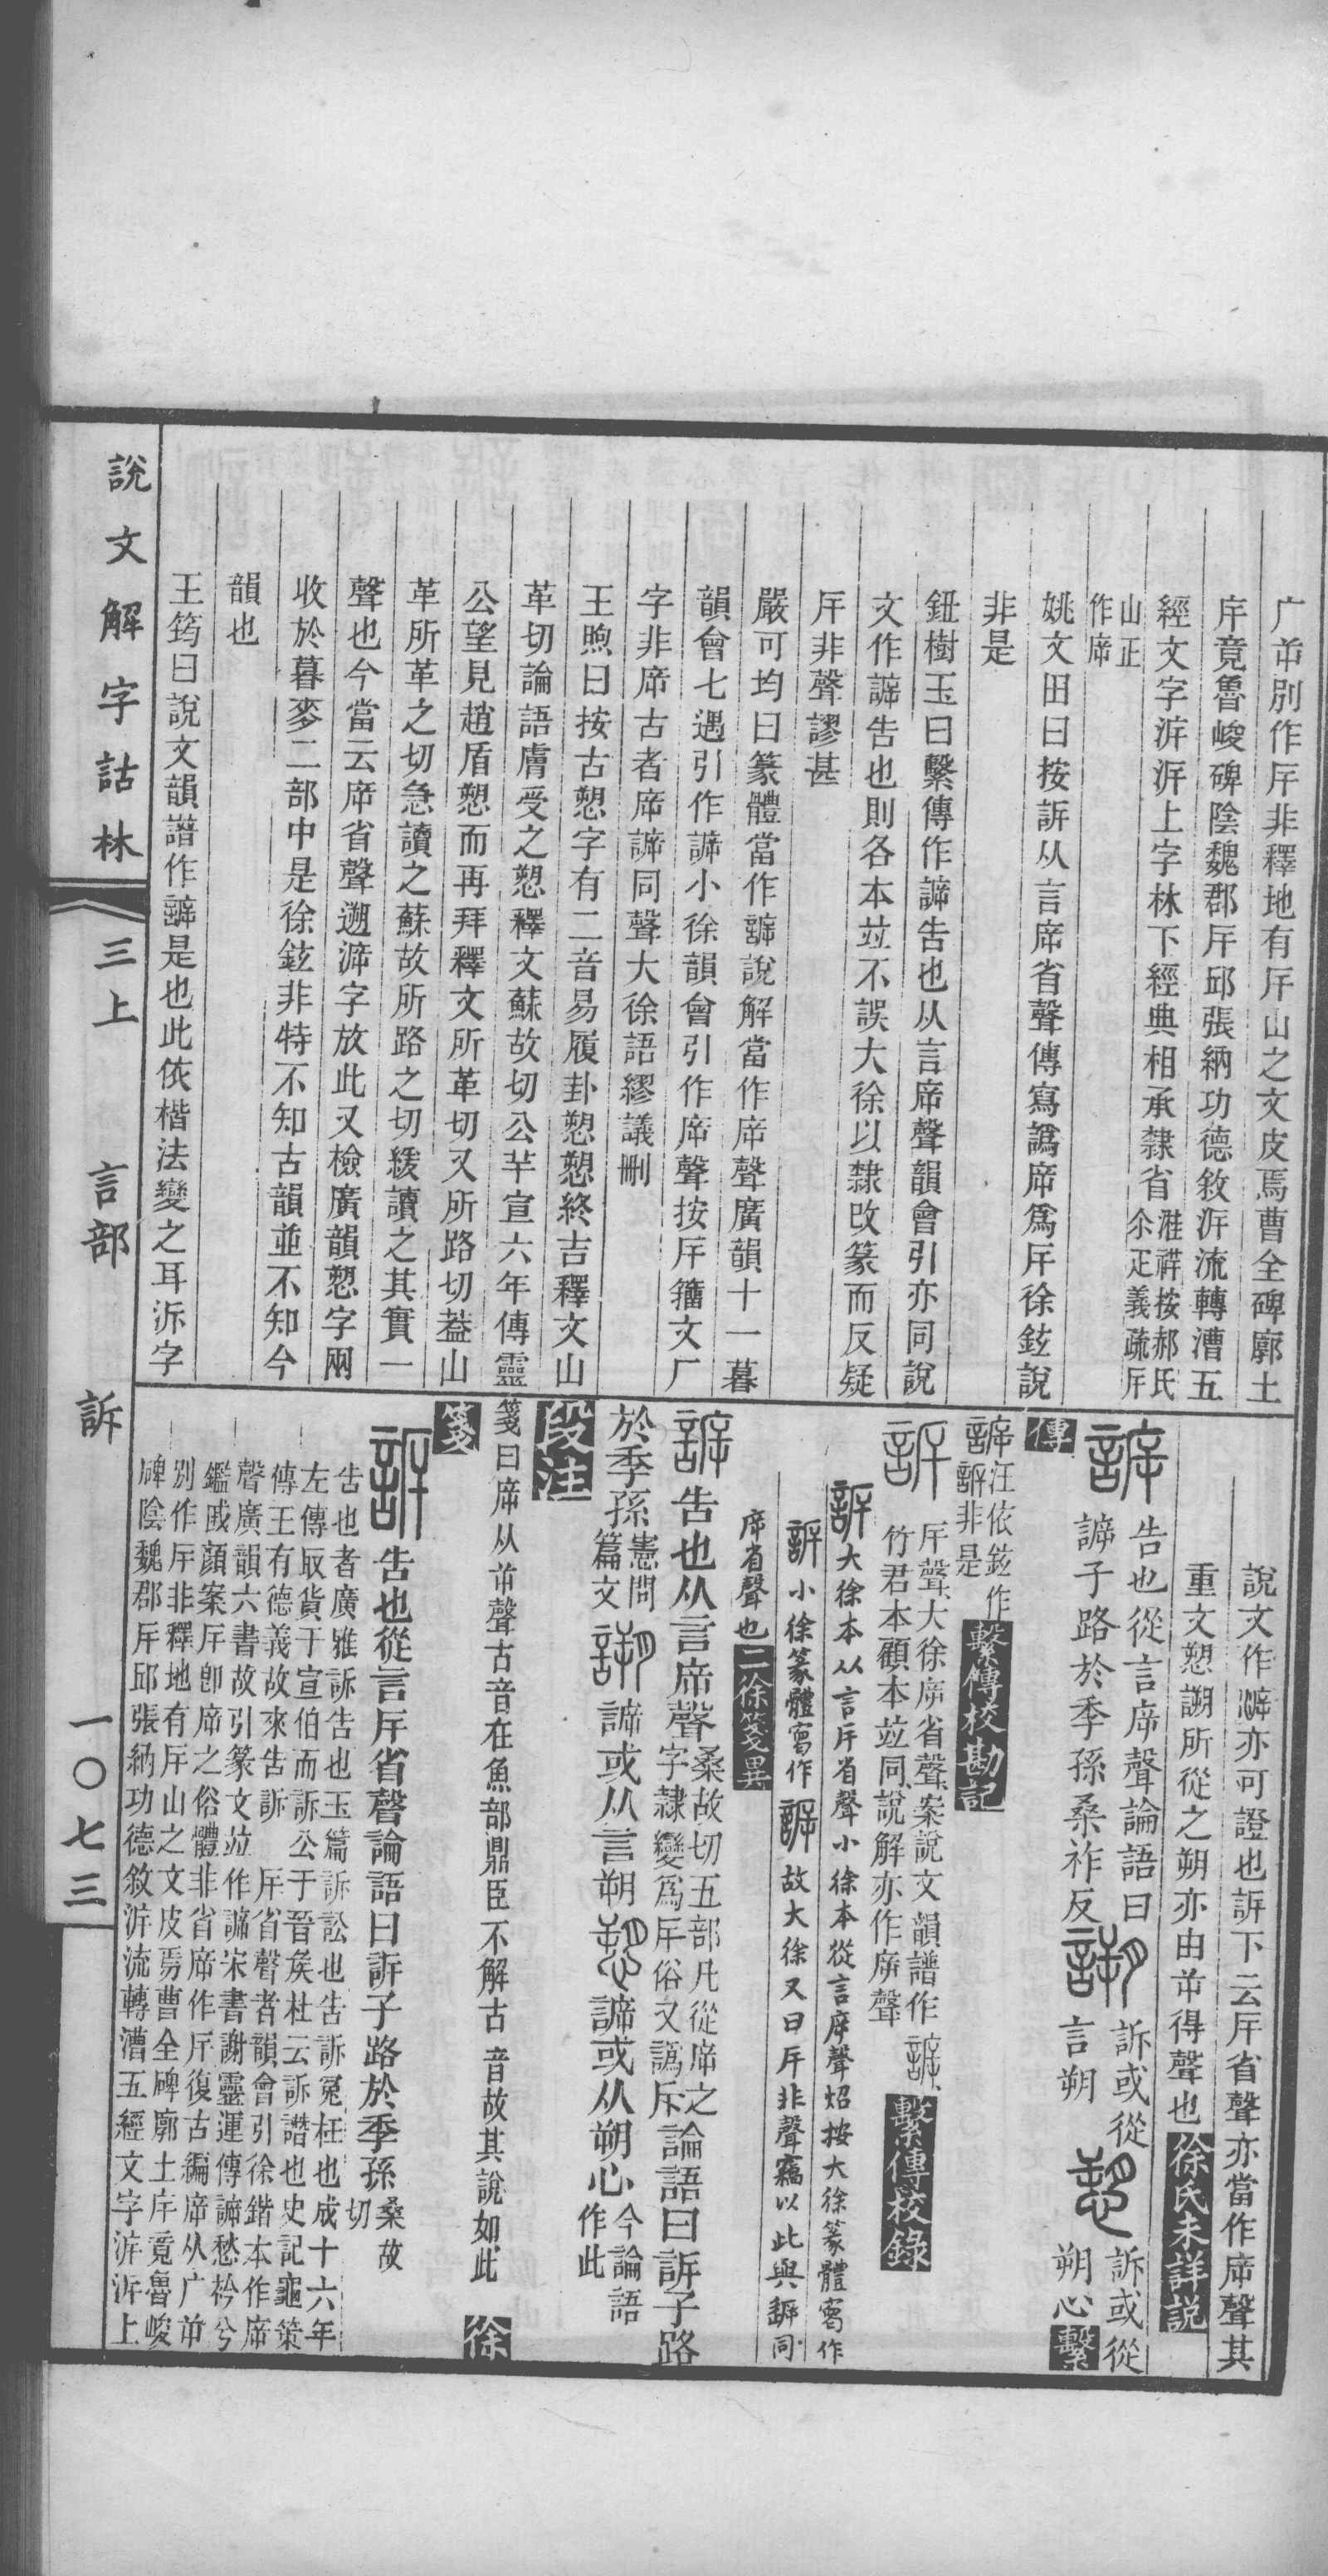 广芇別作厈非釋地有厈山之文皮焉曹全碑廓土
庌竟魯峻碑陰魏郡厈邱張納功德敘㳌流轉漕五
經文字㴑㳌上字林下經典相承隸省
山正
作㡿
姚文田曰按訴从言㡿省聲傳寫譌㡿爲厈徐鉉說
非是
鈕樹玉曰繫傳作䜑告也从言㡿聲韻會引亦同說
文作䜑告也則各本竝不誤大徐以隸改篆而反疑
厈非聲謬甚
嚴可均曰篆體當作䜑說解當作㡿聲廣韻十一暮
韻會七遇引作䜑小徐韻會引作㡿聲按厈籒文厂
字非㡿古者㡿䜑同聲大徐語繆議刪
王煦曰按古愬字有二音易履卦愬愬終吉釋文山
革切論語膚受之愬釋文蘇故切公羊宣六年傳靈
公望見趙盾愬而再拜釋文所革切又所路切葢山
革所革之切急讀之蘇故所路之切緩讀之其實一
聲也今當云㡿省聲遡㴑字放此又檢廣韻愬字兩
收於暮麥二部中是徐鉉非特不知古韻並不知今
韻也
王筠曰說文韻譜作䜑是也此依楷法變之耳泝字
說文作㴑亦可證也訴下云厈省聲亦當作㡿聲其
重文愬謝所從之朔亦由芇得聲也徐氏未詳説
告也從言㡿聲論語曰
䜑子路於季孫桑祚反
訴或從
言朔
訴或從
朔心
繫
傳
汪依鉉作
訴非是
繫傳校勘記
厈聲大徐㡿省聲案說文韻譜作䜑
竹君本顧本竝同說解亦作㡿聲
繫傳校錄
大徐本从言厈省聲小徐本從言㡿聲炤按大徐篆體寫作
訴小徐篆體寫作䜑故大徐又曰厈非聲竊以此與䜑同
㡿省聲也二徐箋異
告也从言㡿聲
桑故切五部凡從㡿之
字隸變爲厈俗又譌斥
論語曰訴子路
於季孫
憲問
篇文
䜑或从言朔
䜑或从朔心
今論語
作此
段注
箋曰㡿从芇聲古音在魚部鼎臣不解古音故其說如此徐
箋
告也從言厈省聲論語曰訴子路於季孫
桑故
切
告也者廣雅訴告也玉篇訴訟也告訴冤枉也成十六年
左傳取貨于宣伯而訴公于晉矦杜云訴譖也史記龜策
傳王有德義故來告訴　厈省聲者韻會引徐鍇本作㡿
聲廣韻六書故引篆文竝作䜑宋書謝靈運傳䜑愁衿兮
鑑戚顏案厈卽㡿之俗體非省㡿作厈復古編㡿从广芇
別作厈非釋地有厈山之文皮焉曹全碑廓土庌竟魯峻
碑陰魏郡厈邱張納功德敘㳌流轉漕五經文字㴑㳌上
說文解字詁林
三上
言部
訴
一〇七三